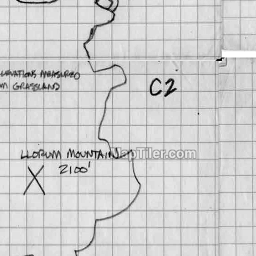 ELEVATIONS MEASURED
FROM GRASSLAND
C2
LLORUM MOUNTAIN
2100'
X
MapTiler.com